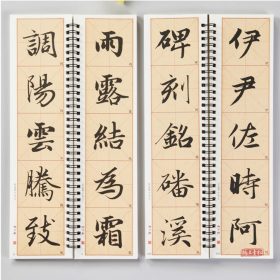 調陽雲騰致
雨露結為霜
碑刻銘磻溪
伊尹佐時阿